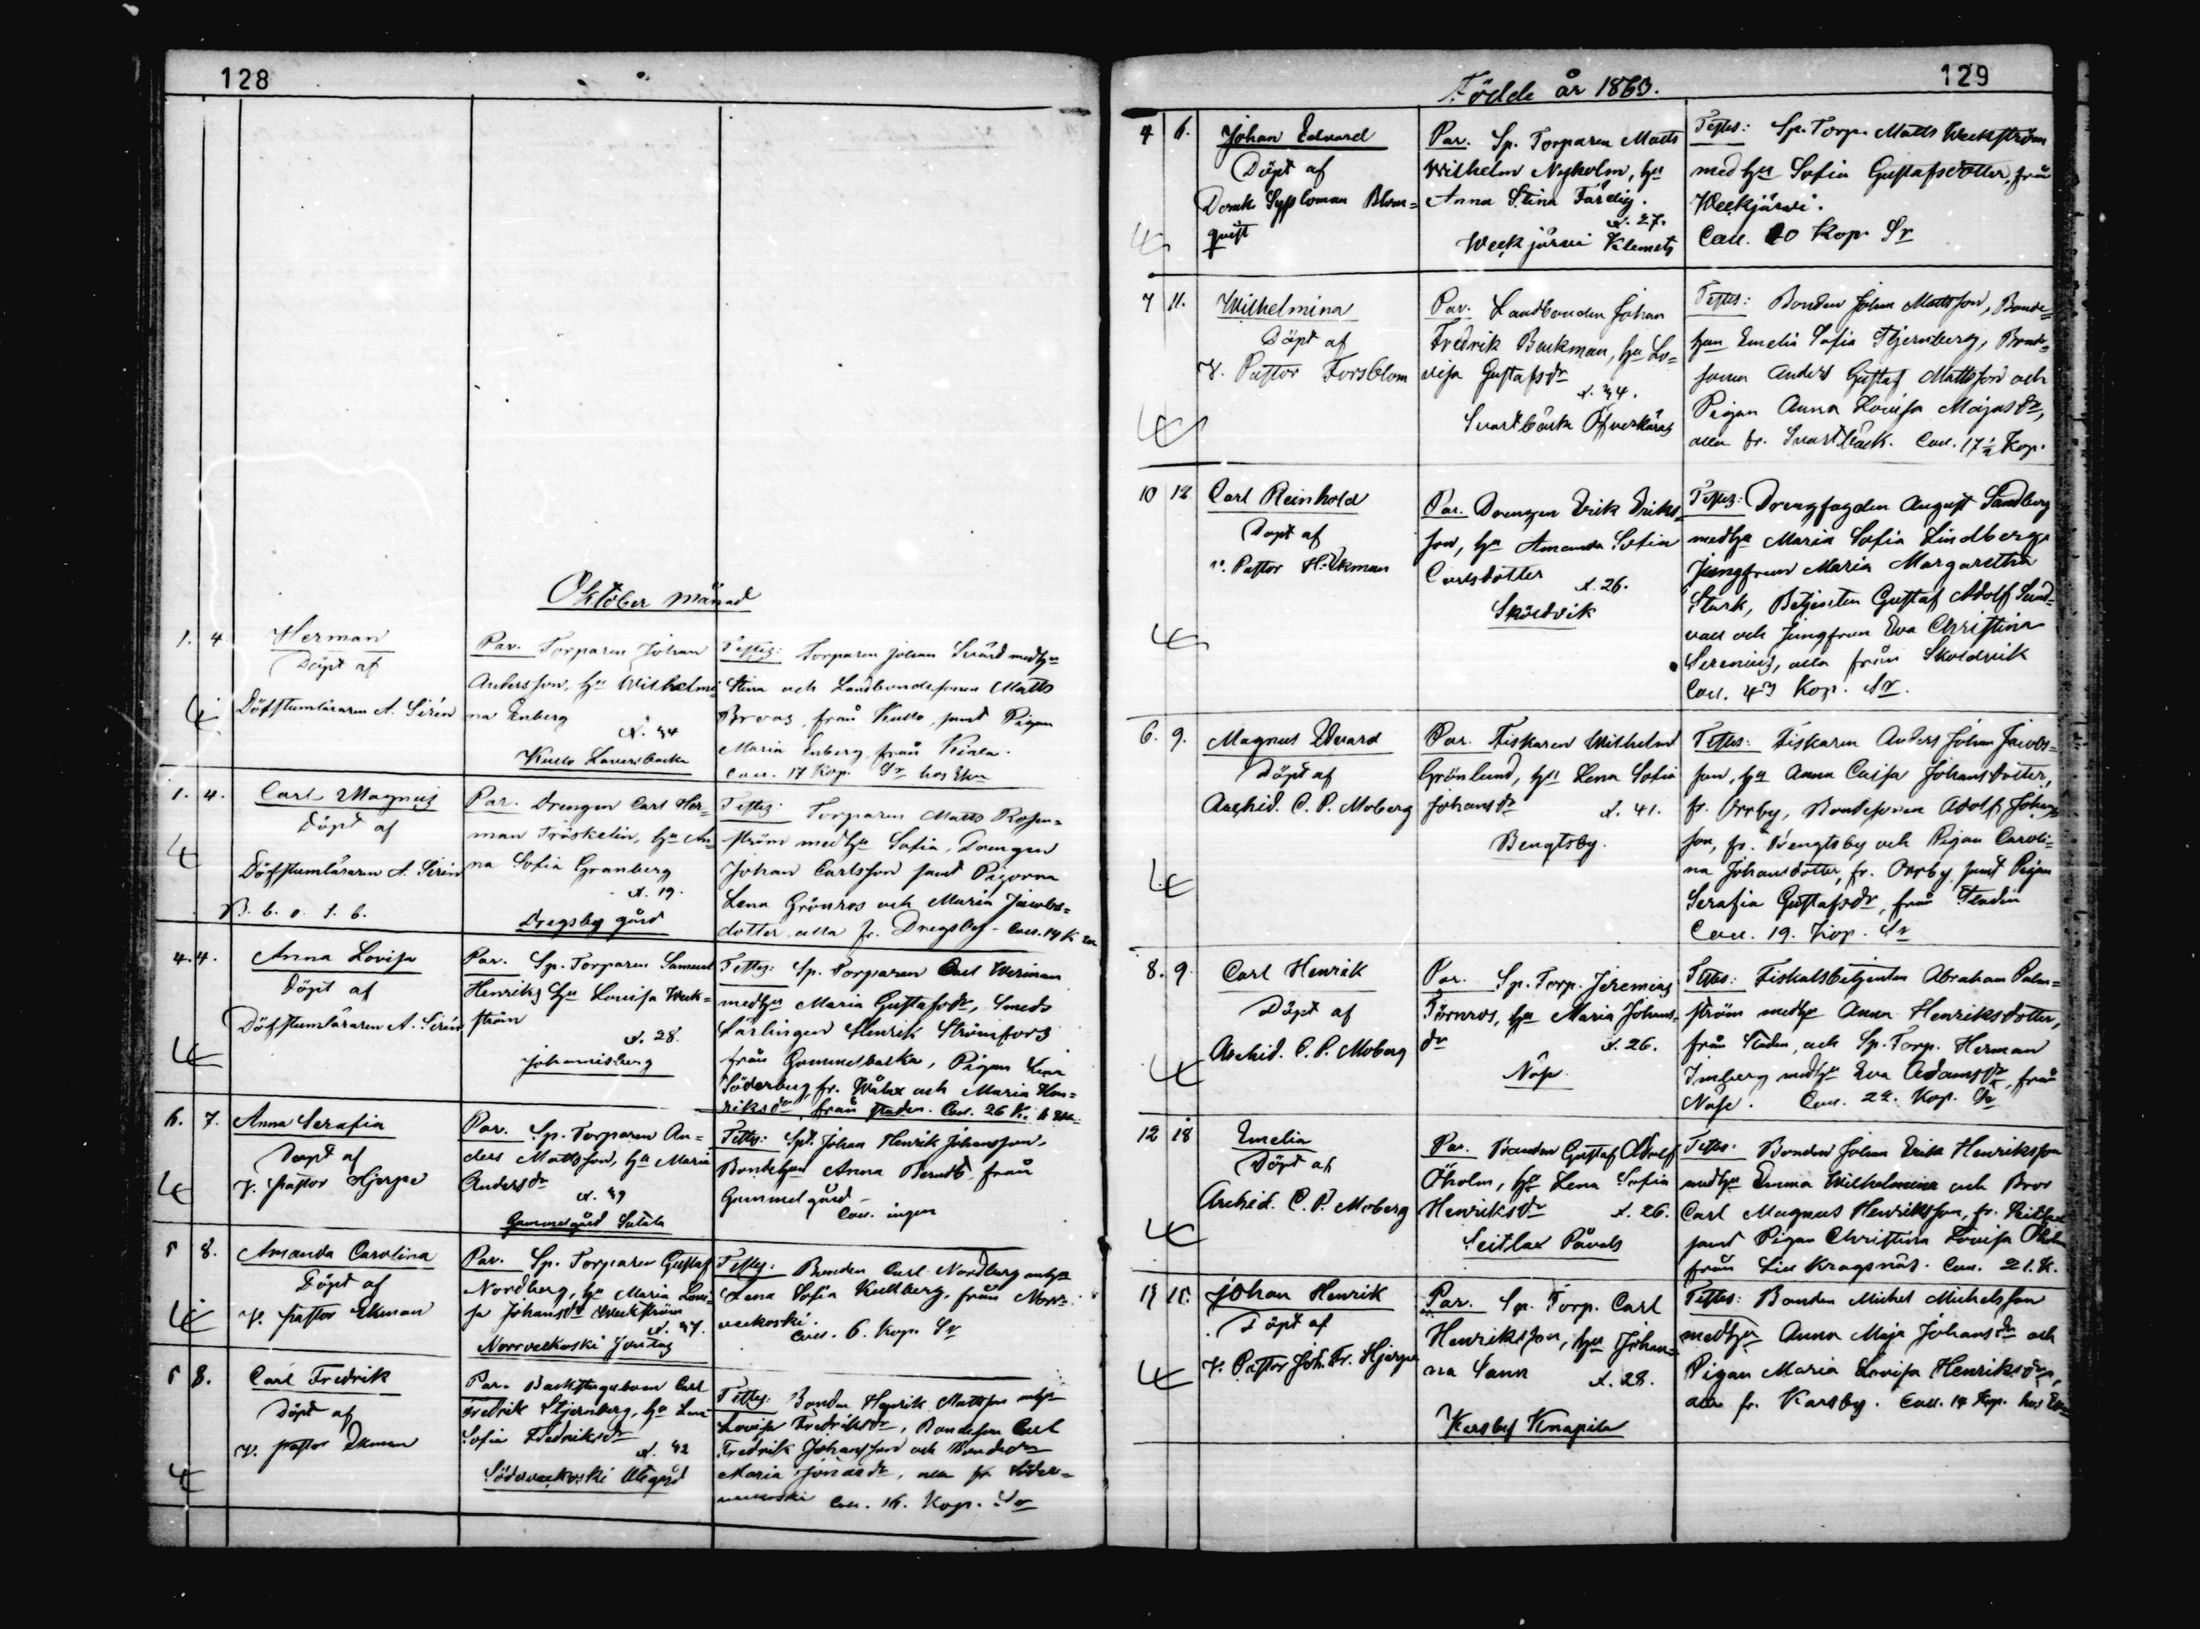 128
Oktober månad
1. 4
Herman
Döpt af
Döfstumläraren A. Sirén
Par. Torparen Johan
Andersson, hu Wilhelmi-
na Enberg
Kullo Laversbacka
Testes: Torparen Johan Svärd med hu
Stina och Landbondesonen Matts
Broas, från Kullo, samt Pigan
Maria Enberg från Kiala.
Coll. 17 Kop. Sr
1. 4.
Carl Magnus
Döpt af
Döfstumläraren A. Sirén
Par. Drengen Carl Her-
man Träskelin, hu An-
na Sofia Granberg
A. 19.
Drägsby gård
Testes: Torparen Matts Rosen-
ström med hu Sofia, Drengen
Johan Carlsson samt Pigorna
Lena Grönros och Maria Jacobs-
dotter, alla fr. Drägsby.
4. 4.
Anna Lovisa
Döpt af
Döfstumläraren A. Sirén
Par. Sp. Torparen Samuel
Henriks, hu Lovisa Week-
ström
A. 28.
Johannisberg
Testes: Sp. Torparen Carl Weiman
med hu Maria Gustafsdr, Smeds
Lärlingen Henrik Strömfors
från Gammelbacka, Pigan Lena
Söderberg, fr. Wålax och Maria Hen-
riksdr, från staden. Coll. 26 K.
6. 7.
Anna Serafia
Döpt af
V. Pastor Hjerpe
Par. Sp. Torparen An-
ders Mattsson, hu Maria
Andersdr
A. 39
Gammelgård Sutila
Testes: Johan Henrik Johansson,
Anna Berndts, från
Gammelgård
Coll. ingen
5 8.
Amanda Carolina
Döpt af
V. Pastor Ekman
Par. Sp. Torparen Gustaf
Nordberg, hu Maria Lovi-
sa Johansdr Weckström
A. 37.
Norrveckoski
Testes: Bonden Carl Nordberg med hu
Lena Sofia Kullberg, från Norr-
veckoski.
Coll. 6. Kop. Sr
5 8.
Carl Fredrik
Döpt af
V. Pastor Ekman
Par. Carl
Fredrik Stjernberg, hu Lena
Sofia Fredriksdr
A. 42
Söderveckoski
Testes: Bonden Henrik Mattsson med hu
Lovisa Fredriksdr, Bondeson Carl
Fredrik Johansson och
Maria, alla fr. Söder-
veckoski Coll. 16. Kop. Sr
Födde år 1863.
129
4 6.
Johan Edvard
Döpt af
Domk. Syssloman Blom-
qvist
Par. Sp. Torparen Matts
Wilhelm Nyholm, hu
Anna Stina Färdig.
A. 27.
Weekjärvi Klemets
Testes: Sp. Torp. Matts Weckström
med hu Sofia Gustafsdotter, från
Weekjärvi.
Coll. 20 Kop. Sr
7 11.
Wilhelmina
Döpt af
V. Pastor Forsblom
Par. Landbonden Johan
Fredrik Backman, hu Lo-
visa Gustafsdr
A. 34.
Svartbäck Öfverkärs
Testes: Bonden Johan Mattsson, Bonde-
hun Emelia Sofia Stjernberg, Bonde-
sonen Anders Gustaf Mattsson och
Pigan Anna Lovisa Majasdr,
alla fr. Svartbäck. Coll. 17 1/2 Kop.
10 12
Carl Reinhold
Döpt af
v. Pastor H. Ekman
Par. Drengen Erik Eriks-
son, hu Amanda Sofia
Carlsdotter
A. 26.
Sköldvik
Testes: Drengfogden August Sandberg
med hu Maria Sofia Lindberg
Jungfrun Maria Margaretha
Stark, Betjenten Gustaf Adolf Sund-
vall och Jungfrun Eva Christina
Serenius, alla från Sköldvik
Coll. 43 Kop. Sr.
6. 9.
Magnus Edvard
Döpt af
Archid. C. P. Moberg
Par. Fiskaren Wilhelm
Grönlund, hu Lena Sofia
Johansdr
A. 41.
Bengtsby.
Testes: Fiskaren Anders Johan Jacobs-
son, hu Anna Caisa Johansdotter,
fr. Orrby, Bondesonen Adolf Johans-
son, fr. Bengtsby och Pigan Caroli-
na Johansdotter, fr. Orrby samt Pigan
Serafia Gustafsdr, från Staden
Coll. 19. Kop. Sr
8. 9
Carl Henrik
Döpt af
Archid. C. P. Moberg
Par. Sp. Torp. Jeremias
Törnros, hu Maria Johans-
dr
A. 26.
Näse
Testes: Fiskalsbetjenten Abraham Palm-
ström med hu Anna Henriksdotter,
från Staden, och Sp. Torp. Herman
Imberg med hu Eva Adamsdr, från
Näse. Coll. 22. Kop. Sr
12 18
Emelia
Döpt af
Archid. C. P. Moberg
Par. Bonden Gustaf Adolf
Öholm, hu Lena Sofia
Henriksdr
A. 26.
Seitlax Påvals
Testes: Bonden Johan Erik Henriksson
med hu Emma Wilhelmina och Bror
Carl Magnus Henriksson, fr. Seitlax
samt Pigan Christina Lovisa Öholm
från Lill Kragsnäs. Coll. 21. K.
Johan Henrik
Döpt af
V. Pastor Joh. Fr. Hjerpe
Par. Sp. Torp. Carl
Henriksson, hu Johan-
na Sann
A. 28.
Karsby Knapila
Testes: Bonden Michel Michelsson
med hu Anna Maja Johansdr och
Pigan Maria Lovisa Henriksdr,
alla fr. Karsby. Coll. 14 Kop.